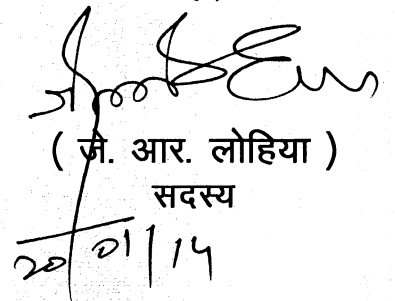 ( जे. आर. लोहिया )
सदस्य
20/01/14